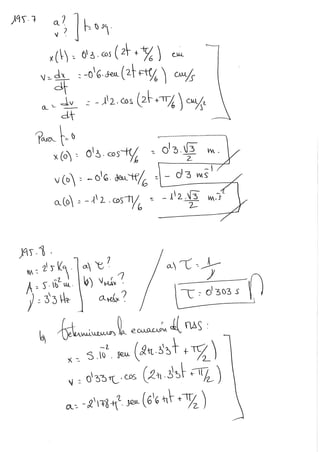 195.7 a? v? ] t=0 sg.
x(t) = 0'3. cos (2t + π/6) cm
v = dx/dt = -0'6. sen (2t + π/6) cm/s
a = dv/dt = -1'2. cos (2t + π/6) cm/s²
Para t=0
x(0) = 0'3. cos π/6 = 0'3. √3/2 m.
v(0) = -0'6. sen π/6 = -0'3 ms⁻¹
a(0) = -1'2. cos π/6 = -1'2 √3/2 m.s⁻²
195.8.
m = 2'5 Kg. a) τ? a) τ = 1/ν
A = 5·10⁻² m. b) vmáx?
ν = 3'3 Hz amáx? τ = 0'303 s
b) Determinemos la ecuación del MAS:
x = 5.10⁻². sen (2π. 3'3t + π/2)
v = 0'33π. cos (2π. 3'3t + π/2)
a = -2'178π². sen (6'6πt + π/2)